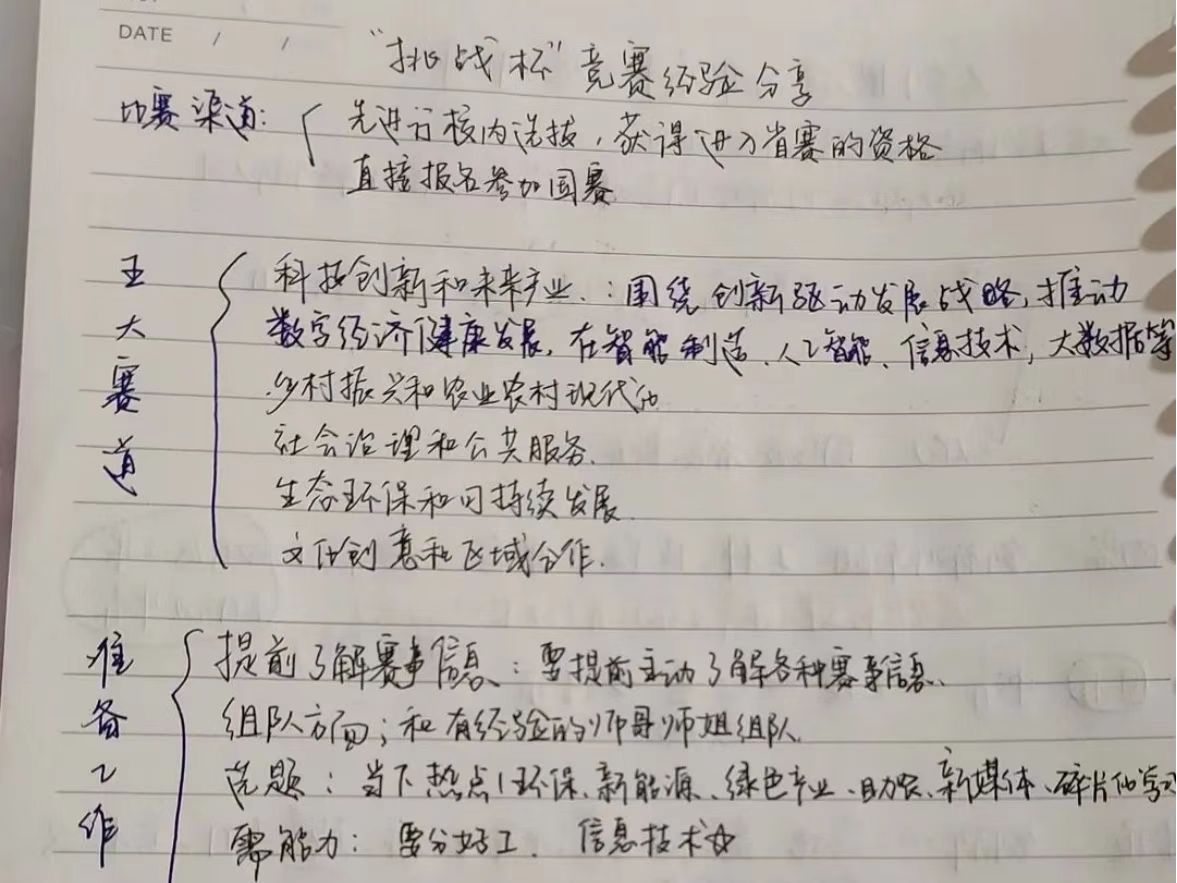 DATE / /
“挑战杯”竞赛经验分享
比赛渠道: 先进行校内选拔,获得进入省赛的资格
直接报名参加国赛
五大赛道
科技创新和未来产业.:围绕创新驱动发展战略,推动
数字经济健康发展,在智能制造、人工智能、信息技术,大数据等
乡村振兴和农业农村现代化
社会治理和公共服务.
生态环保和可持续发展
文化创意和区域合作.
准备工作
提前了解赛事信息:要提前主动了解各种赛事信息.
组队方面;和有经验的师哥师姐组队
选题:当下热点(环保、新能源、绿色产业、助农、新媒体、碎片化学习
需能力:要分好工. 信息技术☆